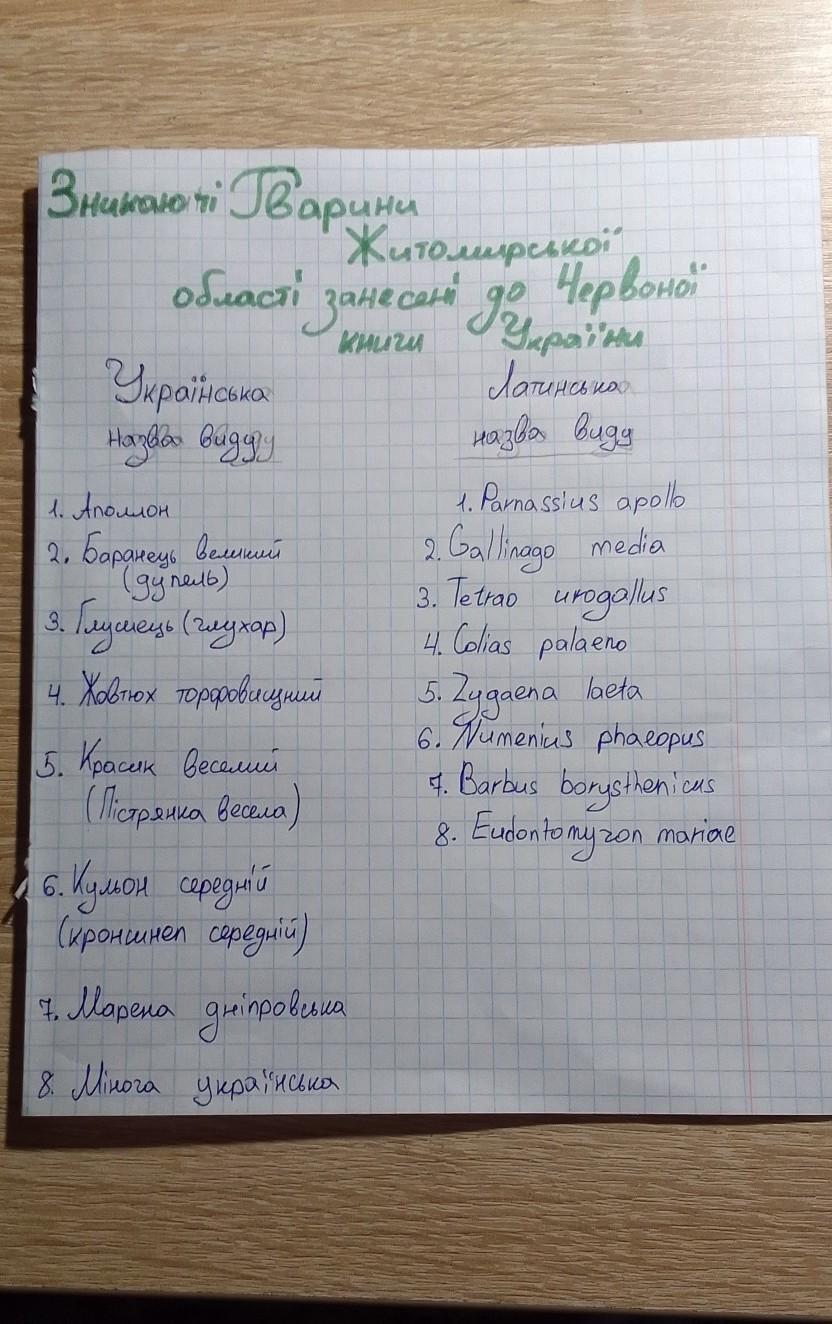 Зникаючі Тварини
Житомирської
області занесені до Червоної
книги України
Українська
назва виду
1. Аполлон
2. Баранець великий
(дупель)
3. Глушець (глухар)
4. Жовтюх торфовищний
5. Красик веселий
(Пістрянка весела)
6. Кульон середній
(кроншнеп середній)
7. Марена дніпровська
8. Мінога українська
Латинська
назва виду
1. Parnassius apollo
2. Gallinago media
3. Tetrao urogallus
4. Colias palaeno
5. Zygaena laeta
6. Numenius phaeopus
7. Barbus borysthenicus
8. Eudontomyzon mariae